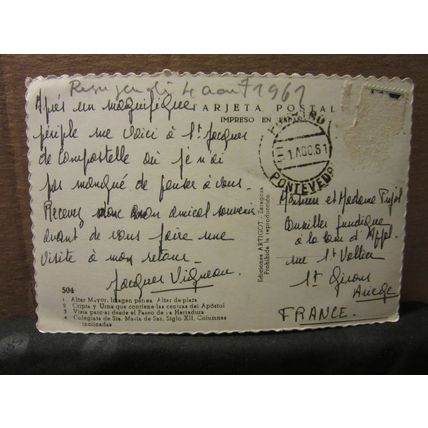 Reçu jeudi 4 août 1961
TARJETA POSTAL
IMPRESO EN
Après un magnifique
périple me voici à St Jacques
de Compostelle où je n'ai
pas manqué de penser à vous.
Recevez mon amical souvenir
avant de vous faire une
visite à mon retour.
Jacques Vigneau.
1 AGO.61
PONTEVEDRA
Ediciones ARTIGOT. - Zaragoza
Prohibida la reproducción
Monsieur et Madame Pujol
Conseiller juridique
à la cour d'Appel
rue St Vallier
St Girons
Ariège
FRANCE.
504
1 Altar Mayor. Imagen pétrea. Altar de plata
2 Cripta y Urna que contiene las cenizas del Apóstol
3 Vista parcial desde el Paseo de la Herradura
4 Colegiata de Sta. María de Sar, Siglo XII. Columnas
inclinadas